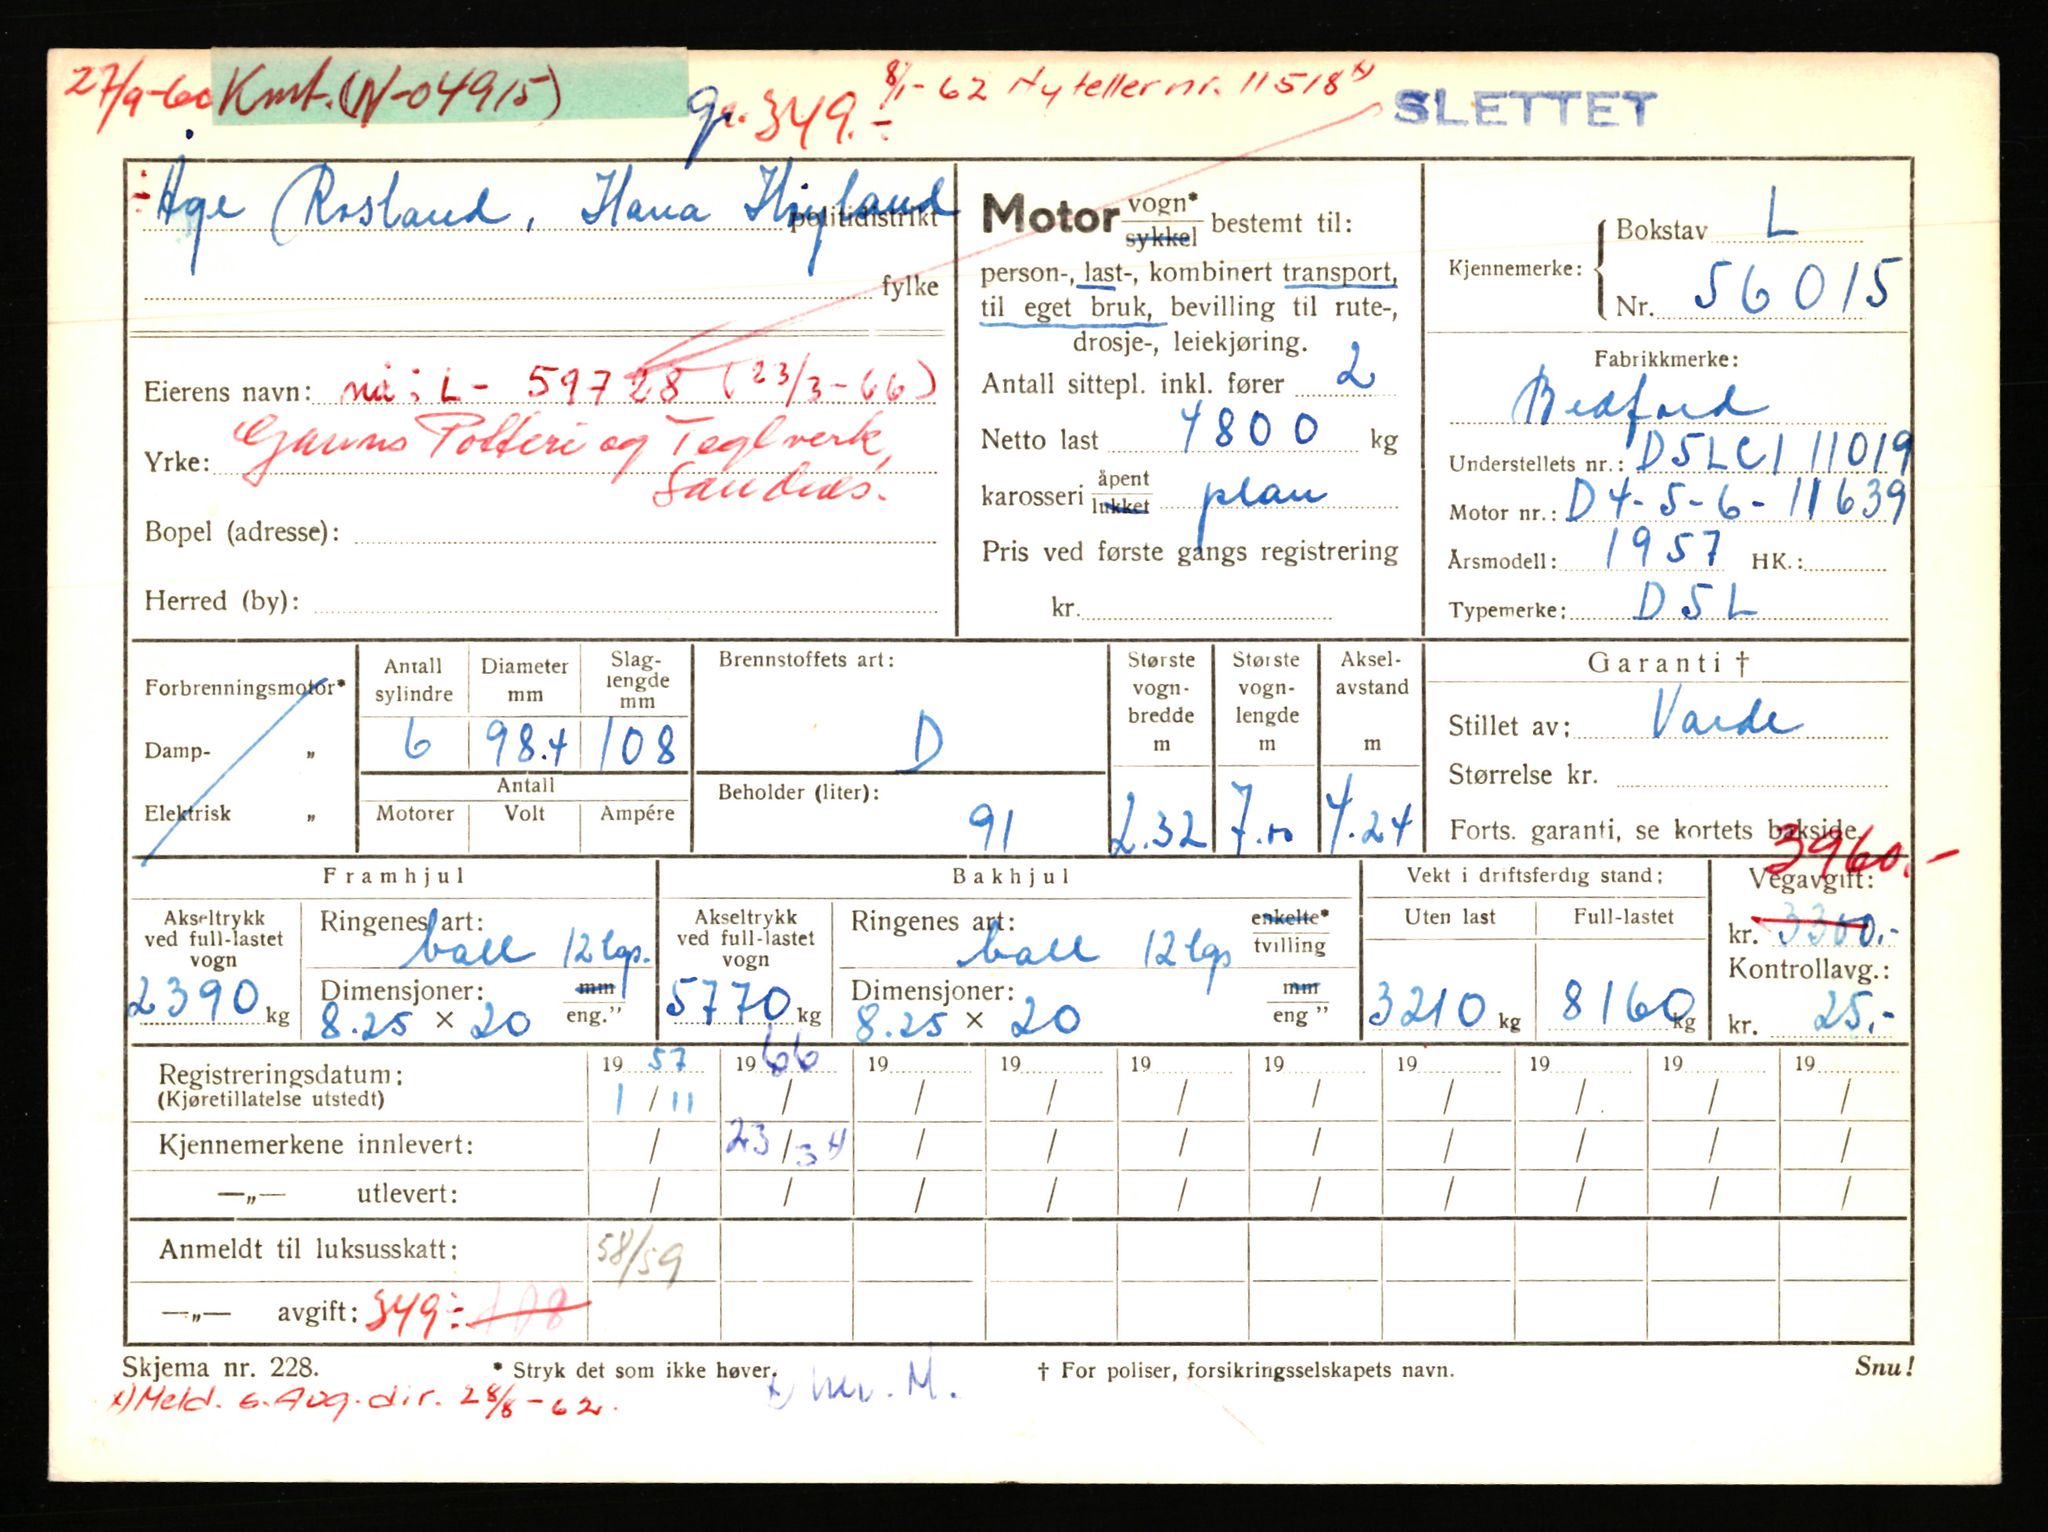 27/9-60 Kmt. (N-04915)
gr. 349.-
8/1-62 Ny tellernr. 11518 x)
SLETTET
Åge Rosland, Hana Høyland politidistrikt
fylke
Eierens navn: nå: L- 59728 (23/3-66)
Gauns Potteri og Teglverk,
Yrke:
Sandnes.
Bopel (adresse):
Herred (by):
Motor vogn* sykkel bestemt til:
person-, last-, kombinert transport,
til eget bruk, bevilling til rute-,
drosje-, leiekjøring.
Antall sittepl. inkl. fører 2
Netto last 4800 kg
karosseri åpent lukket plan
Pris ved første gangs registrering
kr.
Kjennemerke: Bokstav L
Nr. 56015
Fabrikkmerke:
Bedford
Understellets nr.: D5LC1 11019
Motor nr.: D4-5-6-11639
Årsmodell: 1957 HK.:
Typemerke: D5L
Forbrenningsmotor*
Damp- „
Elektrisk „
Antall sylindre 6
Diameter mm 98.4
Slaglengde mm 108
Antall
Motorer Volt Ampére
Brennstoffets art:
D
Beholder (liter):
91
Største vogn-bredde m 2.32
Største vogn-lengde m 7.00
Aksel-avstand m 4.24
Garanti †
Stillet av: Varde
Størrelse kr.
Forts. garanti, se kortets bakside.
Framhjul
Akseltrykk ved full-lastet vogn
2390 kg
Ringenes art:
ball 12 lgs.
Dimensjoner: mm eng.”
8.25 × 20
Bakhjul
Akseltrykk ved full-lastet vogn
5770 kg
Ringenes art: enkelte* tvilling
ball 12 lgs
Dimensjoner: mm eng ”
8.25 × 20
Vekt i driftsferdig stand:
Uten last Full-lastet
3210 kg 8160 kg
3960.-
Vegavgift:
kr. 3300.-
Kontrollavg.:
kr. 25.-
Registreringsdatum: 19 57 19 66 19 19 19 19 19 19 19 19
(Kjøretillatelse utstedt) 1 / 11 / / / / / / / / /
Kjennemerkene innlevert: / 23/3 x) / / / / / / / /
—„— utlevert: / / / / / / / / / /
Anmeldt til luksusskatt: 58/59
—„— avgift: 349:-
Skjema nr. 228. * Stryk det som ikke høver. † For poliser, forsikringsselskapets navn. Snu!
x) Meld. s. Avg.dir. 28/8-62.